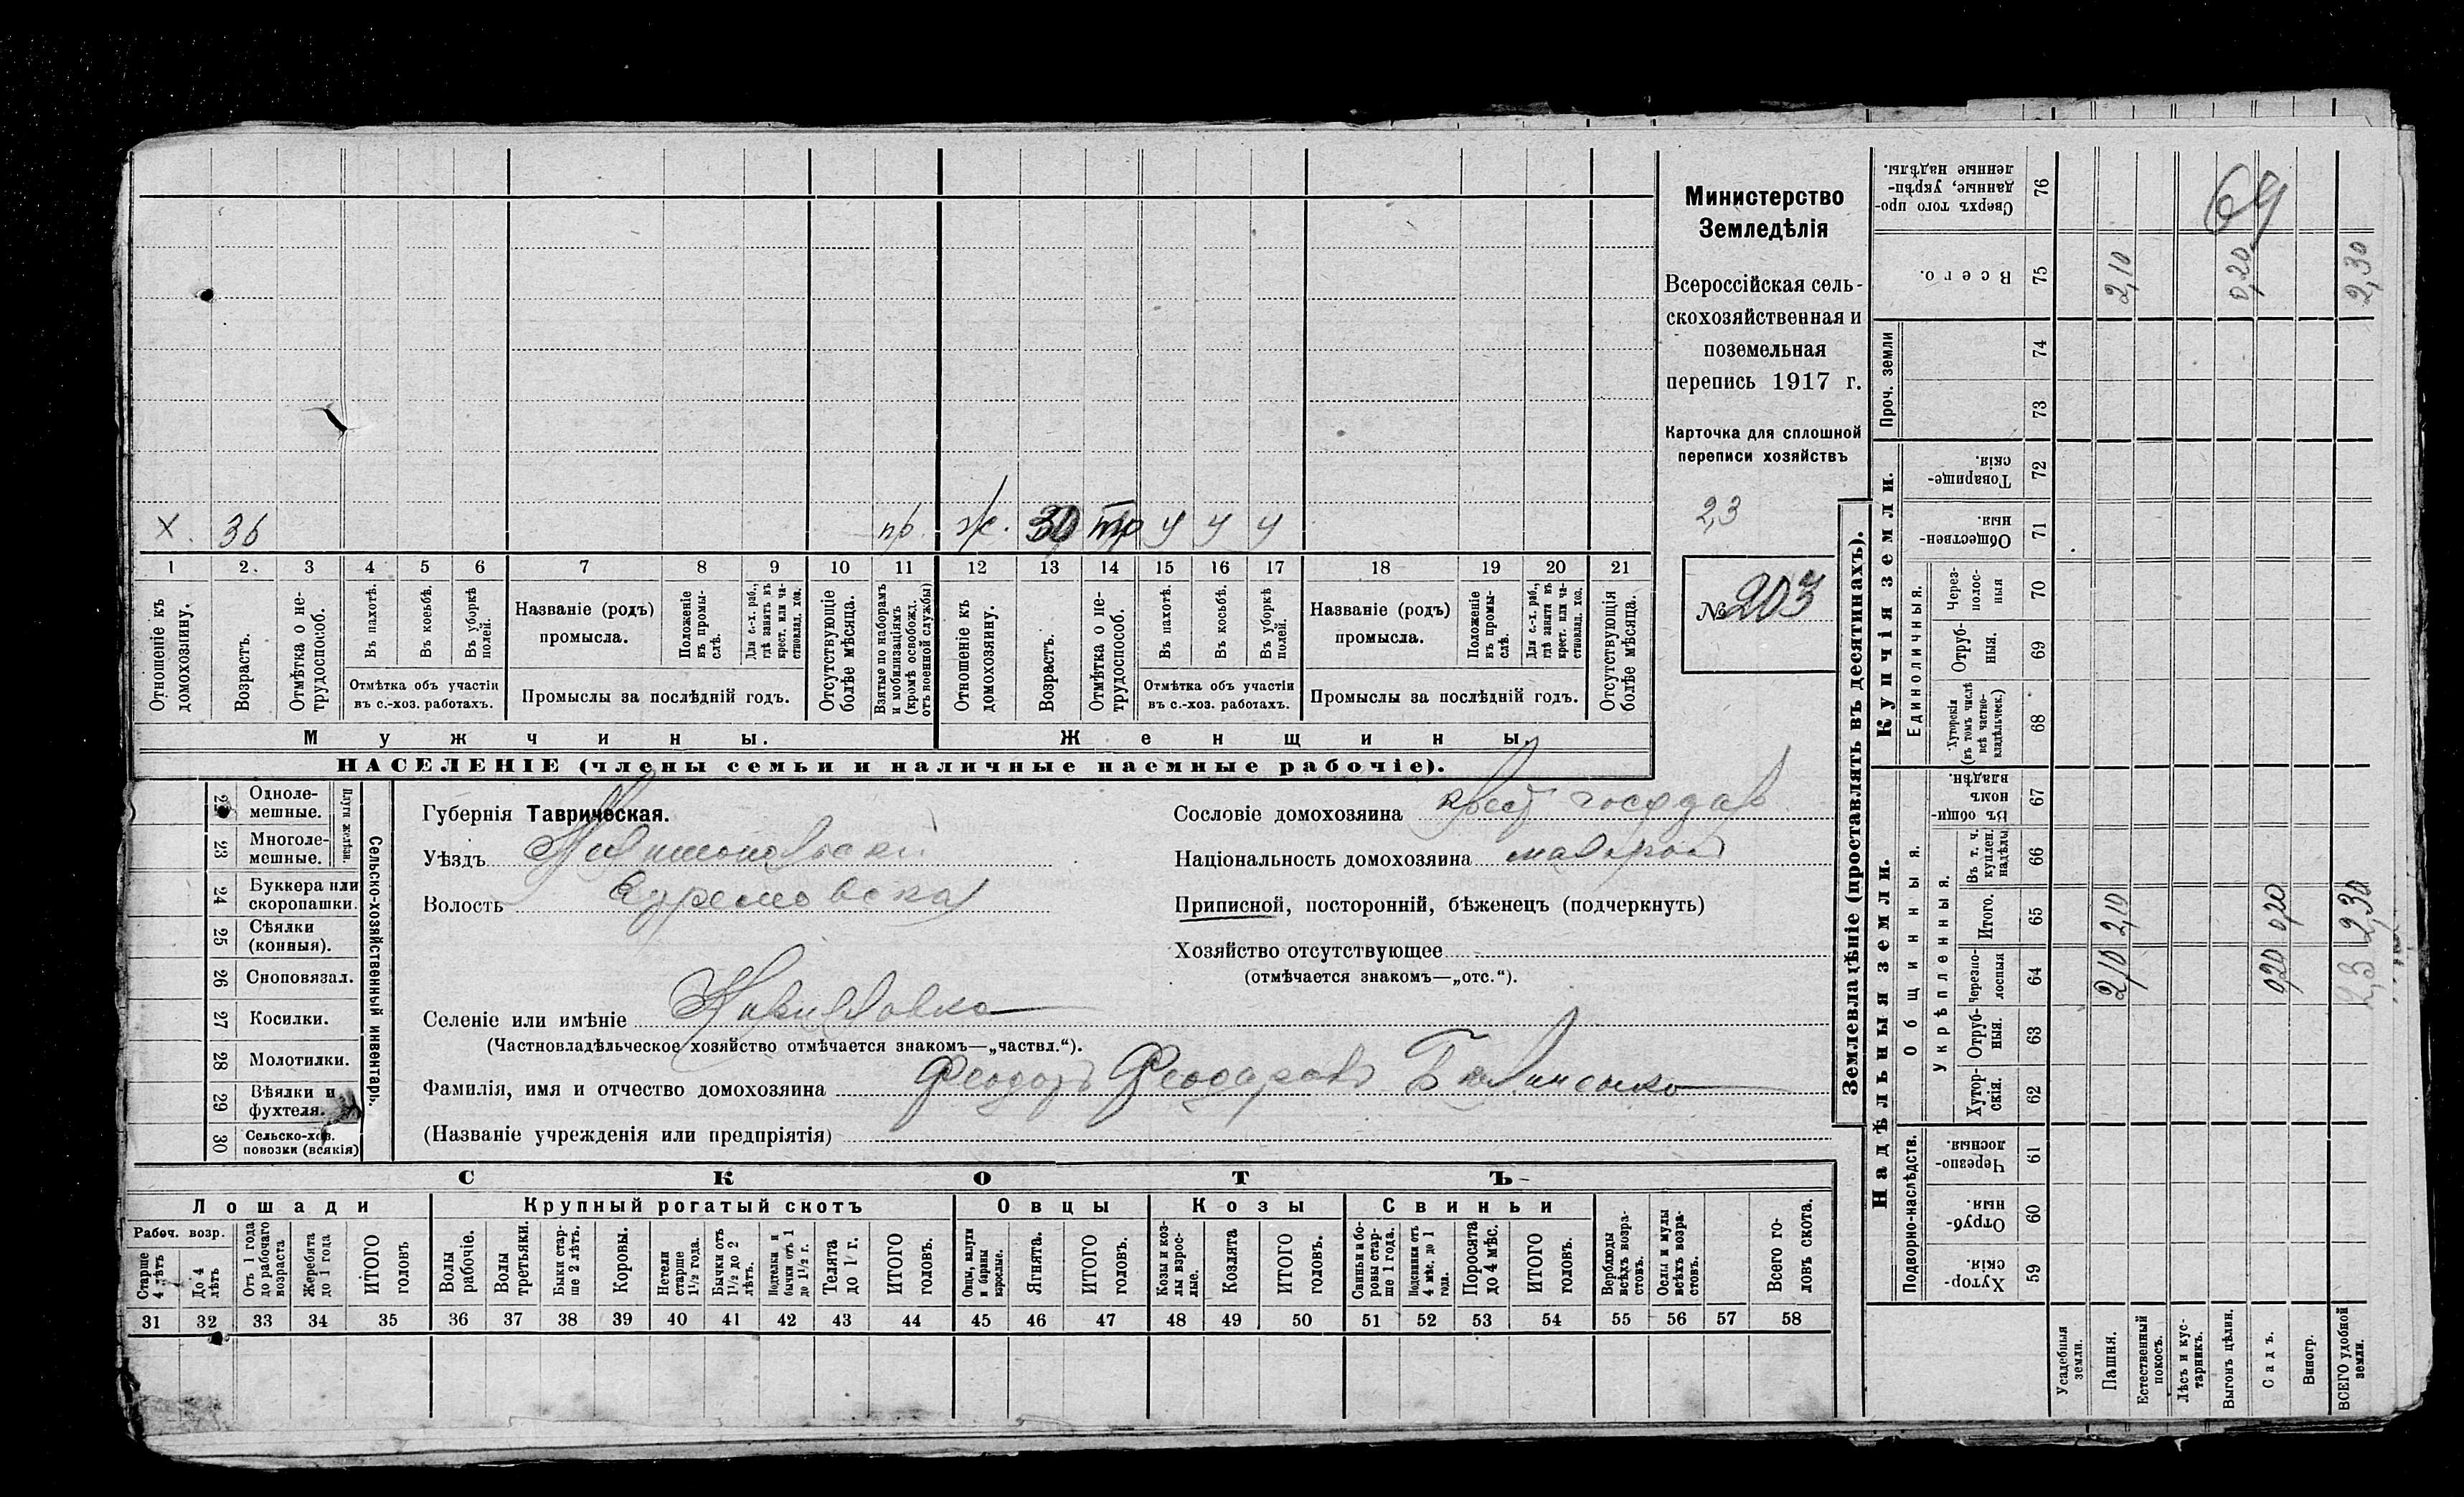 Министерство
Земледѣлія
Всероссійская сель-
скохозяйственная и
поземельная
перепись 1917 г.
Карточка для сплошной
переписи хозяйствъ
2,3
№ 203
Х. 36 пр. ж. 30 тр у у у
1 2 3 4 5 6 7 8 9 10 11 12 13 14 15 16 17 18 19 20 21
Отношеніе къ домохозяину.
Возрастъ.
Отмѣтка о не-трудоспособ.
Въ пахотѣ.
Въ косьбѣ.
Въ уборкѣ полей.
Отмѣтка объ участіи
въ с.-хоз. работахъ.
Названіе (родъ)
промысла.
Положеніе въ промы-слѣ.
Для с.-х. раб., гдѣ занятъ въ крест. или ча-стновлад. хоз.
Промыслы за послѣдній годъ.
Отсутствующіе болѣе мѣсяца.
Взятые по наборамъ и мобилизаціямъ (кромѣ освобожд. отъ военной службы)
Отношеніе къ домохозяину.
Возрастъ.
Отмѣтка о не-трудоспособ.
Въ пахотѣ.
Въ косьбѣ.
Въ уборкѣ полей.
Отмѣтка объ участіи
въ с.-хоз. работахъ.
Названіе (родъ)
промысла.
Положеніе въ промы-слѣ.
Для с.-х. раб., гдѣ занята въ крест. или ча-стновлад. хоз.
Промыслы за послѣдній годъ.
Отсутствующія болѣе мѣсяца.
Мужчины. Женщины.
НАСЕЛЕНІЕ (члены семьи и наличные наемные рабочіе).
Сельско-хозяйственный инвентарь.
Плуги желѣзн.
Одноле-мешные.
23 Многоле-мешные.
24 Буккера или скоропашки.
25 Сѣялки (конныя).
26 Сноповязал.
27 Косилки.
28 Молотилки.
29 Вѣялки и фухтеля.
30 Сельско-хоз. повозки (всякія)
Губернія Таврическая.
Уѣздъ
Волость
Селеніе или имѣніе
(Частновладѣльческое хозяйство отмѣчается знакомъ—„частвл.“).
Фамилія, имя и отчество домохозяина Феодоръ Феодоровъ
(Названіе учрежденія или предпріятія)
Сословіе домохозяина Крест государ
Національность домохозяина малорос
Приписной, посторонній, бѣженецъ (подчеркнуть)
Хозяйство отсутствующее
(отмѣчается знакомъ—„отс.“).
СКОТЪ
Лошади Крупный рогатый скотъ Овцы Козы Свиньи
Рабоч. возр.
Старше 4 лѣтъ
До 4 лѣтъ
Отъ 1 года до рабочаго возраста
Жеребята до 1 года
ИТОГО головъ
Волы рабочіе.
Волы третьяки.
Быки стар-ше 2 лѣтъ.
Коровы.
Нетели старше 1½ года.
Бычки отъ 1½ до 2 лѣтъ.
Подтелки и бычки отъ 1 до 1½ г.
Телята до 1 г.
ИТОГО головъ.
Овцы, валухи и бараны взрослые.
Ягнята.
ИТОГО головъ.
Козы и коз-лы взрос-лые.
Козлята
ИТОГО головъ.
Свиньи и бо-ровы стар-ше 1 года.
Подсвинки отъ 4 мѣс. до 1 года.
Поросята до 4 мѣс.
ИТОГО головъ.
Верблюды всѣхъ возра-стовъ.
Ослы и мулы всѣхъ возра-стовъ.
Всего го-ловъ скота.
31 32 33 34 35 36 37 38 39 40 41 42 43 44 45 46 47 48 49 50 51 52 53 54 55 56 57 58
Землевладѣніе (проставлять въ десятинахъ).
Надѣльныя земли. Купчія земли.
Проч. земли
Подворно-наслѣдств.
Общинныя.
Укрѣпленныя.
Единоличныя.
Сверхъ того про-данные, укрѣп-ленные надѣлы. 76
Всего. 75 2,10 0,20 2,30
74
73
Товарище-скія. 72
Обществен-ныя. 71
Через-полос-ныя 70
Отруб-ныя. 69
Хуторскія (въ томъ числѣ всѣ частно-владѣльческ.) 68
Въ общи-номъ владѣн. 67
Въ т. ч. куплен. надѣлы 66
Итого. 65 2,10 0,20 2,30
Черезпо-лосныя 64 2,10 0,20 2,3
Отруб-ныя. 63
Хутор-скія. 62
Черезпо-лосныя. 61
Отруб-ныя. 60
Хутор-скія. 59
Усадебныя земли.
Пашня.
Естественный покосъ.
Лѣсъ и кус-тарникъ.
Выгонъ цѣлин.
Садъ.
Виногр.
ВСЕГО удобной земли.
69